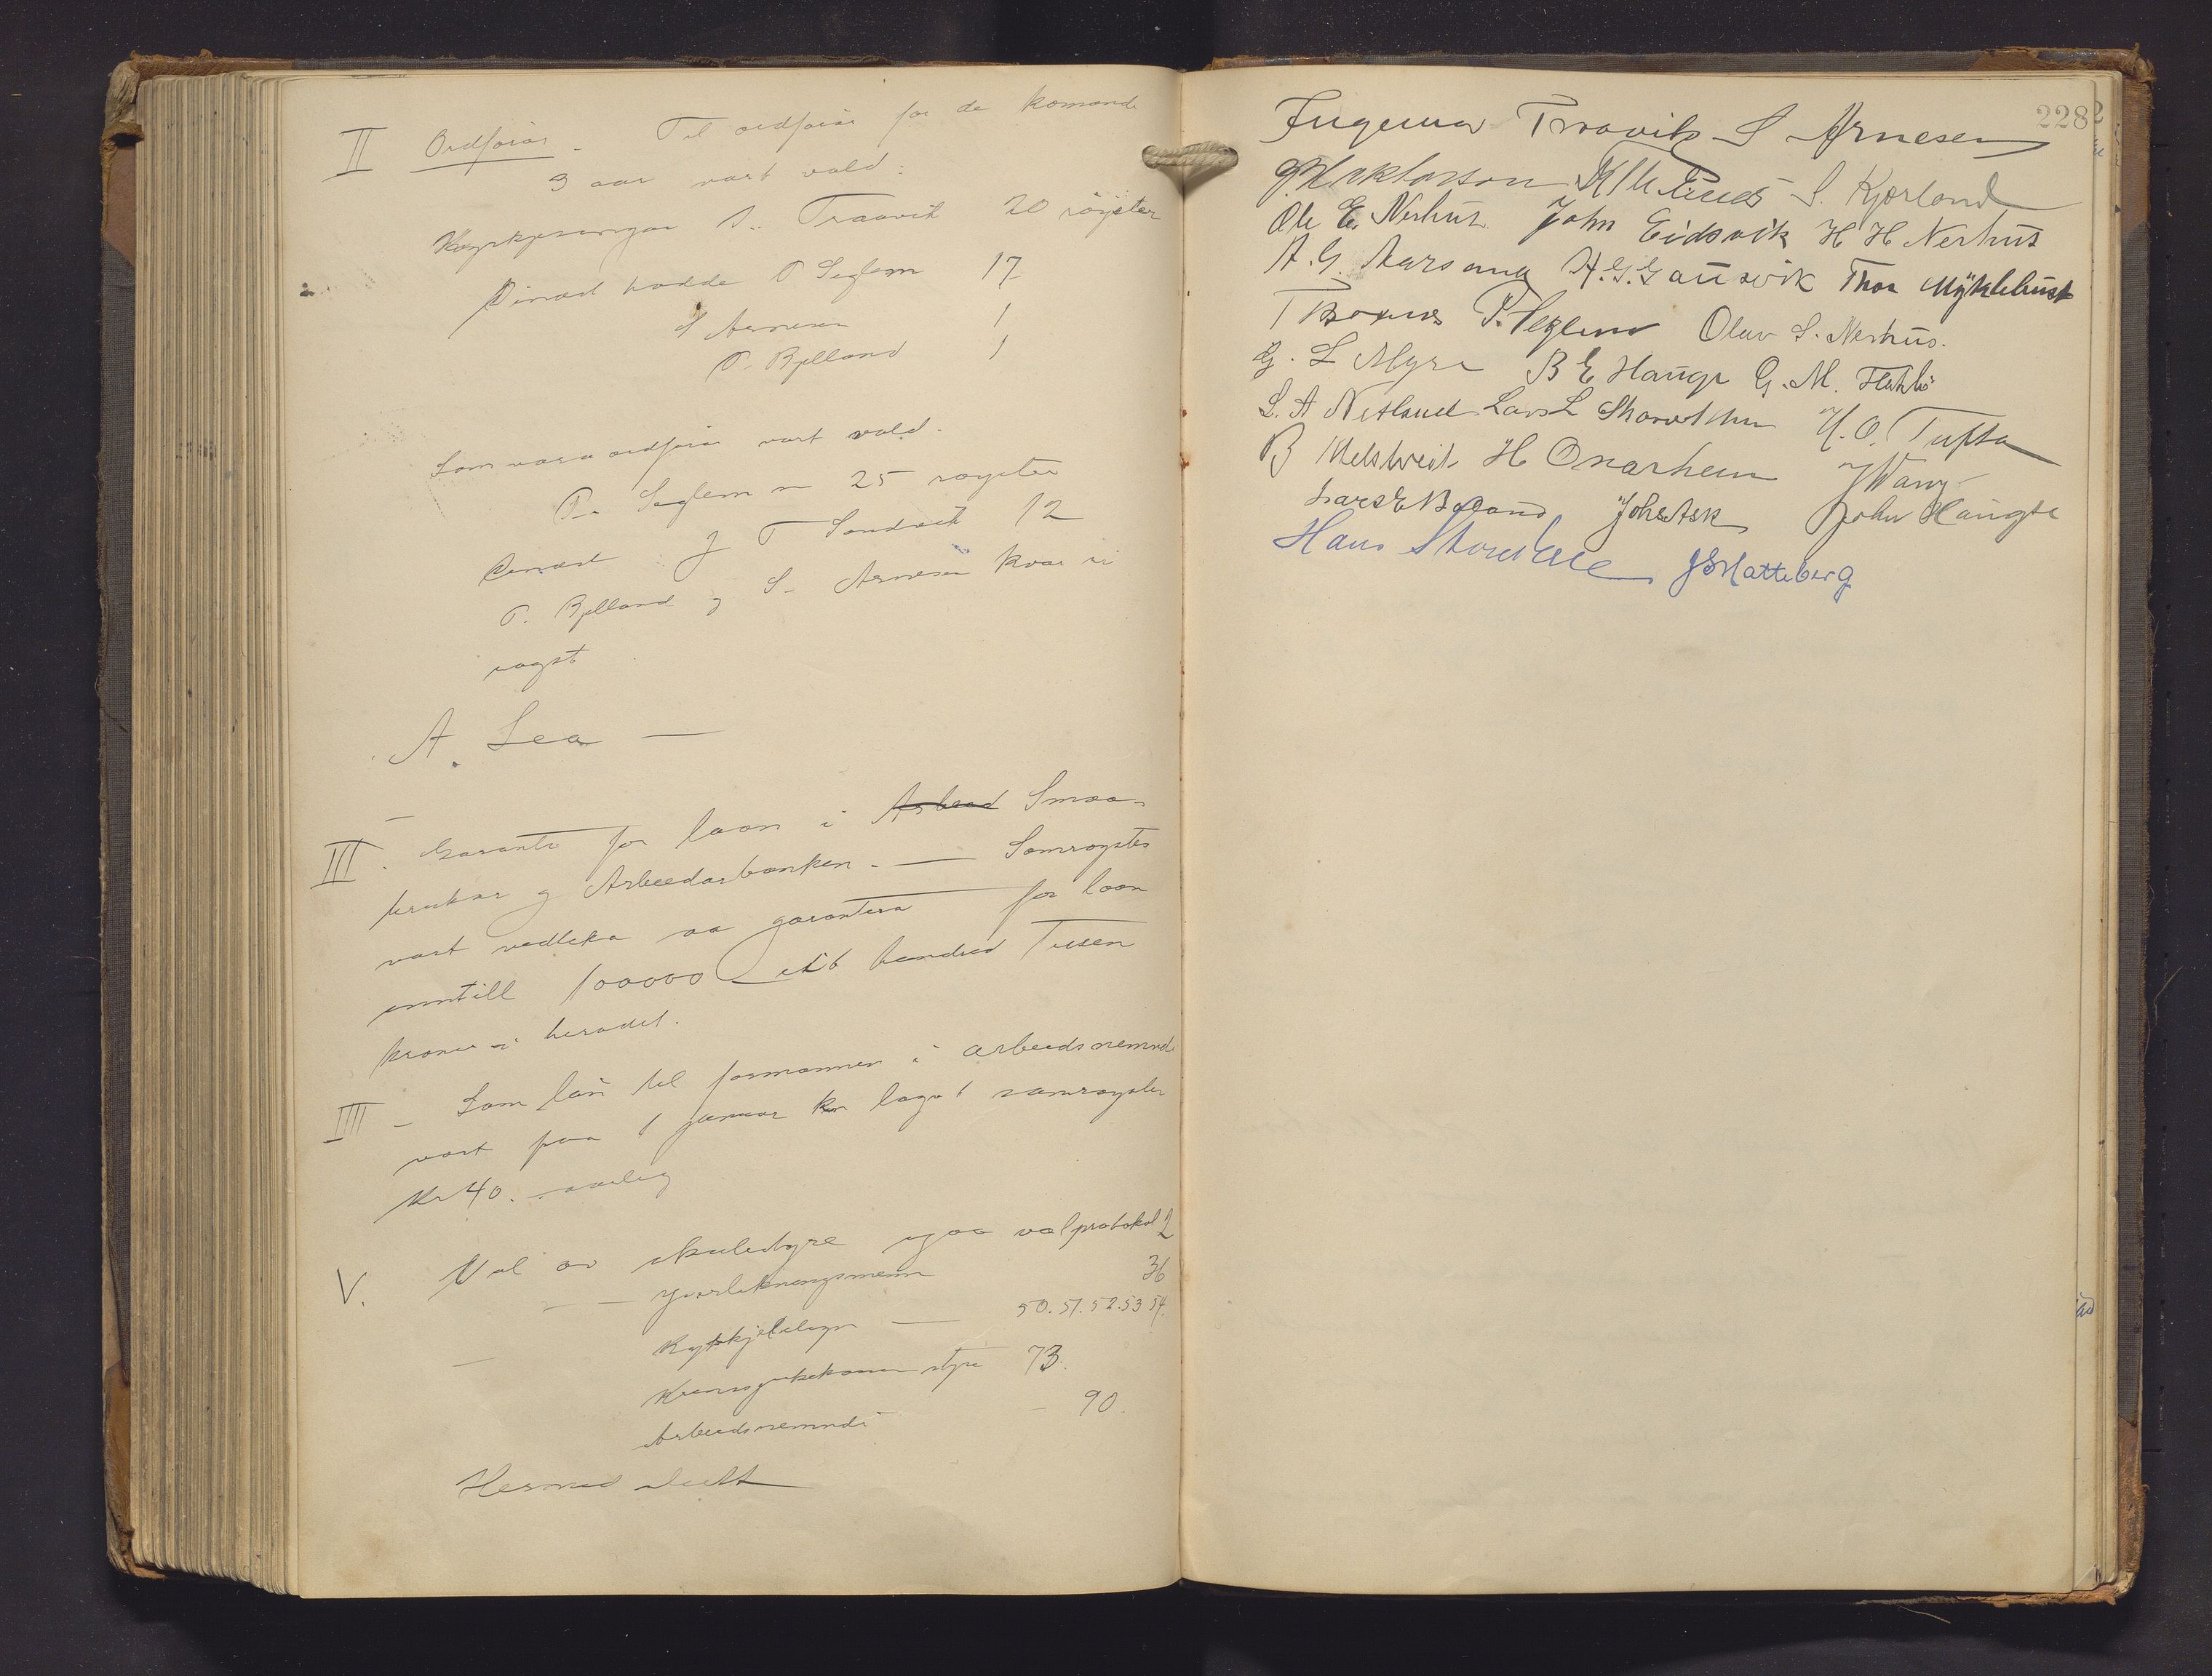 II Ordførar. Til ordførar for de komande
3 aar vart vald:
Kyrkjesongar I. Traavik 20 røyster
Dinæst hadde P Seglem 17
S Arnesen 1
T. Bjelland 1
Som varaordførar vart vald.
P. Seglem m 25 røyster
Dinæst J T Sandvik 12
T. Bjelland og S. Arnesen kvar ei
røyst
A. Lea —
III. Garanti for laan i Arbeid Smaa-
brukar og Arbeidarbanken. — Samrøystes
vart vedteke aa garantera for laan
inntill 100000 eit hundrad Tusen
kronor i heradet.
IIII - Som løn til formannen i arbeidsnemnde
vart fraa 1 januar lagt samrøystes
Kr 40. aarleg
V. Val av skulestyre sjaa valprotokol 2
— yverlikningsmenn 36
Kyrkjetilsyn — 50. 51. 52. 53 54.
Krinssjukekassestyre 73.
Arbeidsnemndi - 90.
Hermed slutt
228
Ingemar Traavik S Arnesen
S. Kjærland
Ole E. Nerhus. John Eidsvik H H Nerhus
A. G. Aarsand H. G. Gausvik Thor Myklebust
P. Seglem Olav S. Nerhus.
G. L Myre B E Hauge G. M.
S. A Netland Lars L H. O. Tufta
B Melstveit H Onarheim J Wang
Lars E Johs Ask John Hauge
Hans J S Hatteberg